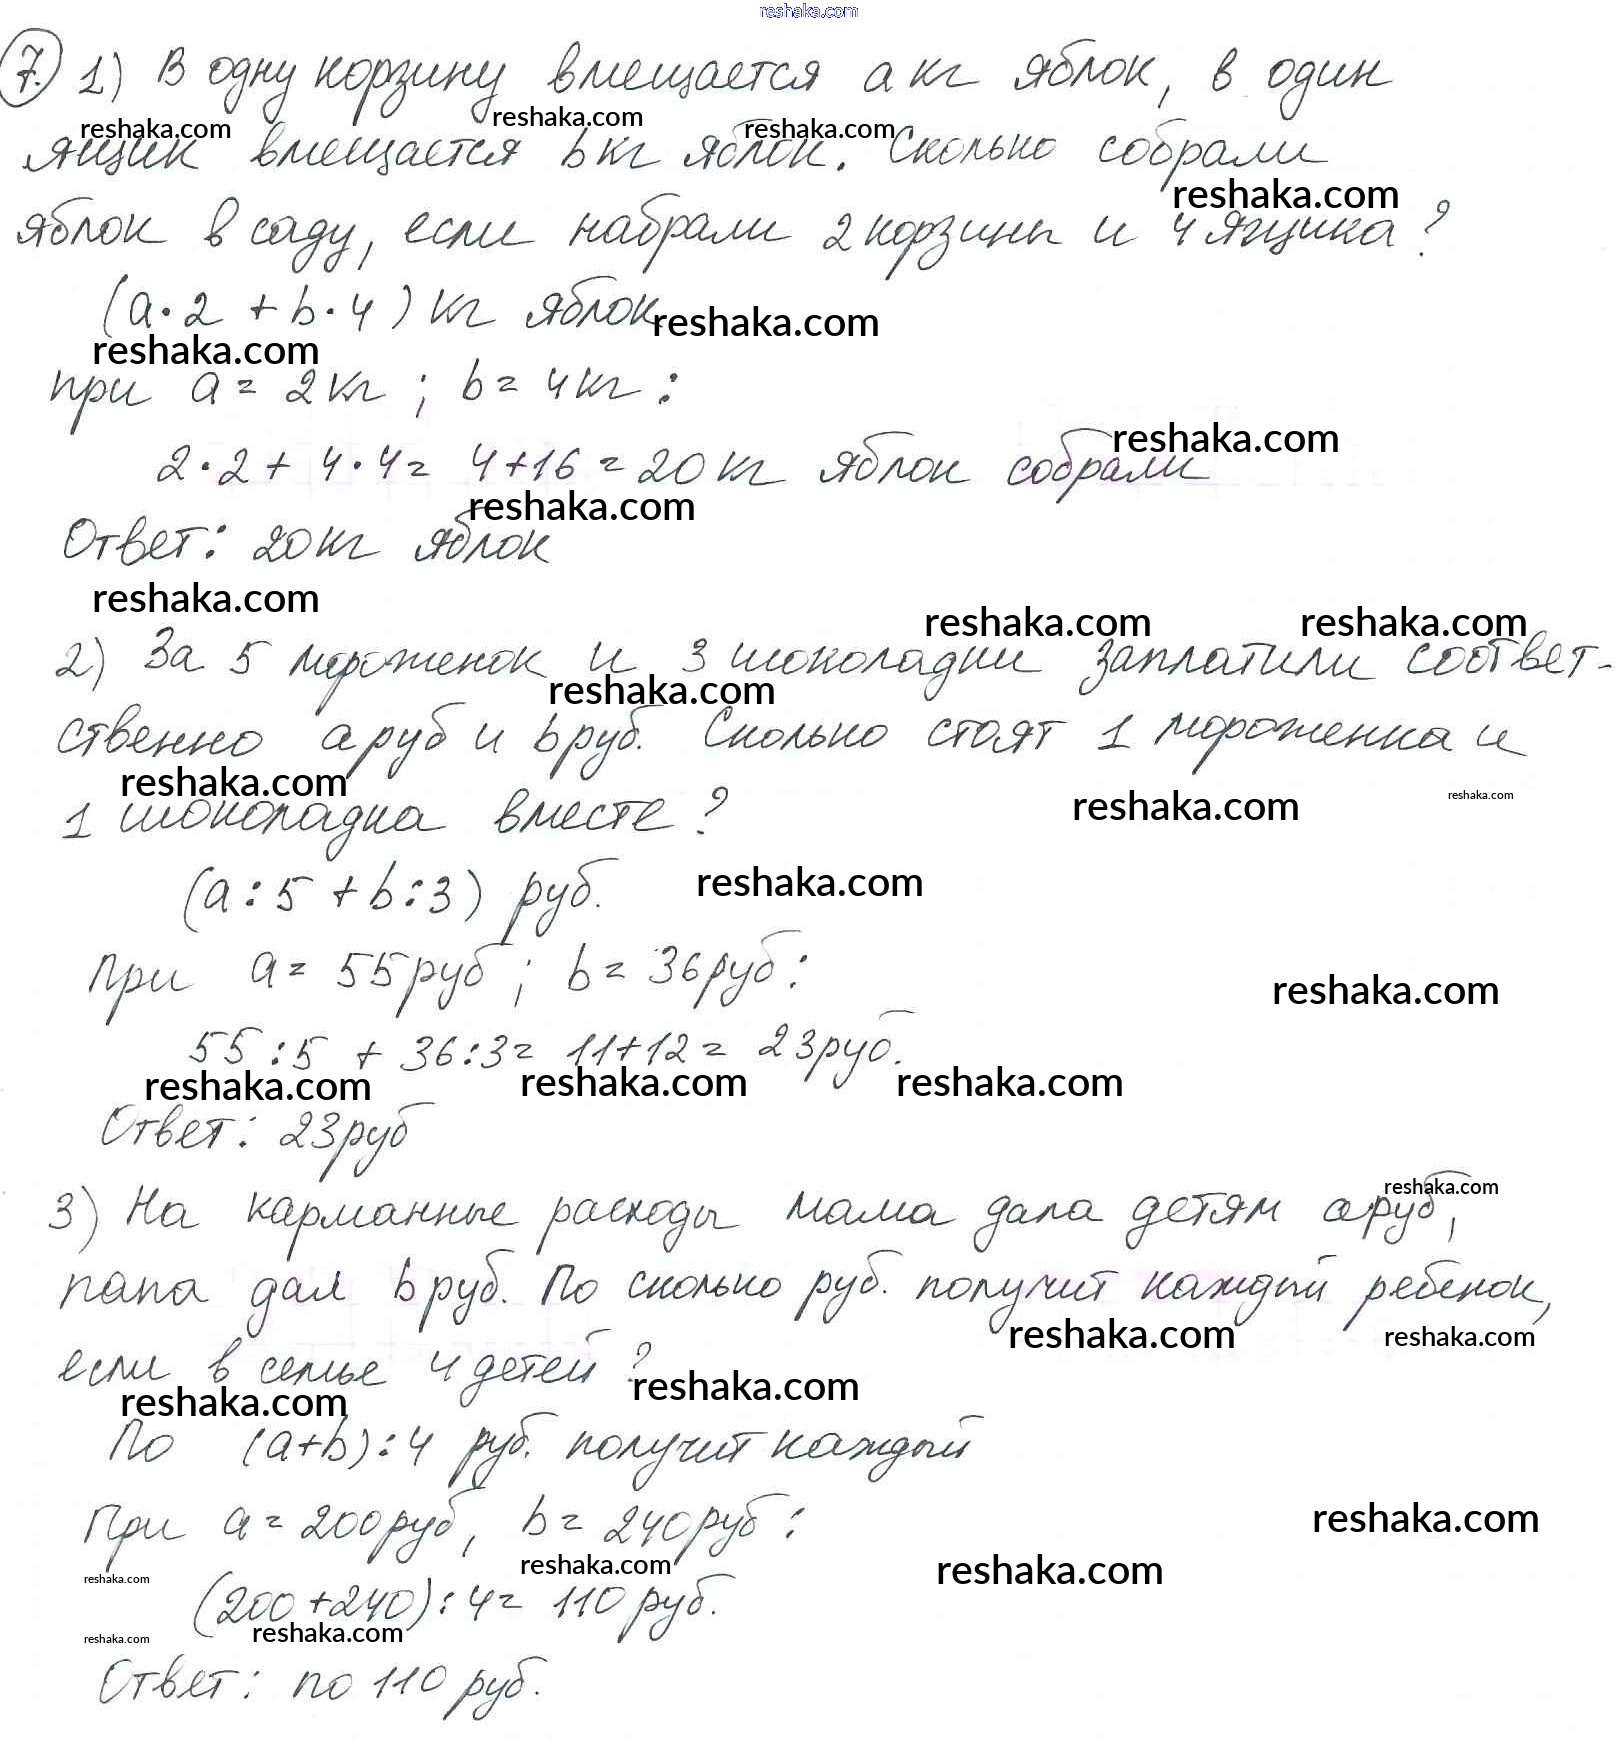 reshaka.com
7. 1) В одну корзину вмещается a кг яблок, в один
reshaka.com reshaka.com reshaka.com
ящик вмещается b кг яблок. Сколько собрали
reshaka.com
яблок в саду, если набрали 2 корзины и 4 ящика?
(a·2 + b·4) кг яблок
reshaka.com
reshaka.com
при a = 2 кг ; b = 4 кг :
reshaka.com
2·2 + 4·4 = 4+16 = 20 кг яблок собрали
reshaka.com
Ответ: 20 кг яблок
reshaka.com
reshaka.com reshaka.com
2) За 5 мороженок и 3 шоколадки заплатили соответ-
reshaka.com
ственно a руб и b руб. Сколько стоят 1 мороженка и
reshaka.com reshaka.com reshaka.com
1 шоколадка вместе?
(a:5 + b:3) руб. reshaka.com
При a = 55 руб ; b = 36 руб :
reshaka.com
55:5 + 36:3 = 11+12 = 23 руб.
reshaka.com reshaka.com reshaka.com
Ответ: 23 руб
reshaka.com
3) На карманные расходы мама дала детям a руб,
папа дал b руб. По сколько руб. получит каждый ребенок,
reshaka.com reshaka.com
если в семье 4 детей?
reshaka.com reshaka.com
По (a+b):4 руб. получит каждый
При a = 200 руб, b = 240 руб :
reshaka.com
reshaka.com reshaka.com reshaka.com
(200+240):4 = 110 руб.
reshaka.com reshaka.com
Ответ: по 110 руб.